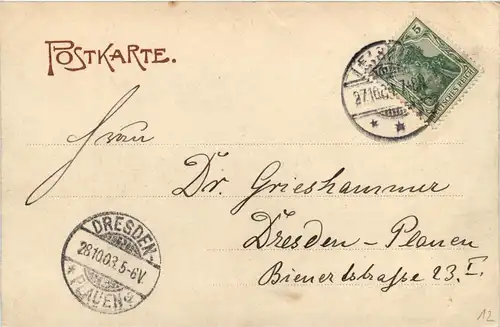 POSTKARTE.
5
DEUTSCHES REICH
27.10.03. 7-8
Frau
Dr. Grieshammer
Dresden-Plauen
Bienertstraße 23. I.
DRESDEN-
28.10.03. 5-6V.
* PLAUEN *
12